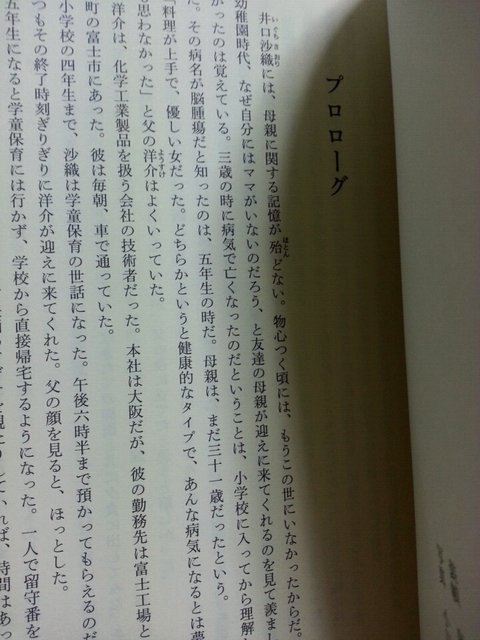 プロローグ
井口沙織には、母親に関する記憶が殆どない。物心つく頃には、もうこの世にいなかったからだ。
幼稚園時代、なぜ自分にはママがいないのだろう、と友達の母親が迎えに来てくれるのを見て羨まし
かったのは覚えている。三歳の時に病気で亡くなったのだということは、小学校に入ってから理解
た。その病名が脳腫瘍だと知ったのは、五年生の時だ。母親は、まだ三十一歳だったという。
「料理が上手で、優しい女だった。どちらかというと健康的なタイプで、あんな病気になるとは夢
も思わなかった」と父の洋介はよくいっていた。
洋介は、化学工業製品を扱う会社の技術者だった。本社は大阪だが、彼の勤務先は富士工場と
町の富士市にあった。彼は毎朝、車で通っていた。
小学校の四年生まで、沙織は学童保育の世話になった。午後六時半まで預かってもらえるのだ
つもその終了時刻ぎりぎりに洋介が迎えに来てくれた。父の顔を見ると、ほっとした。
五年生になると学童保育には行かず、学校から直接帰宅するようになった。一人で留守番を
れば、時間はあっ